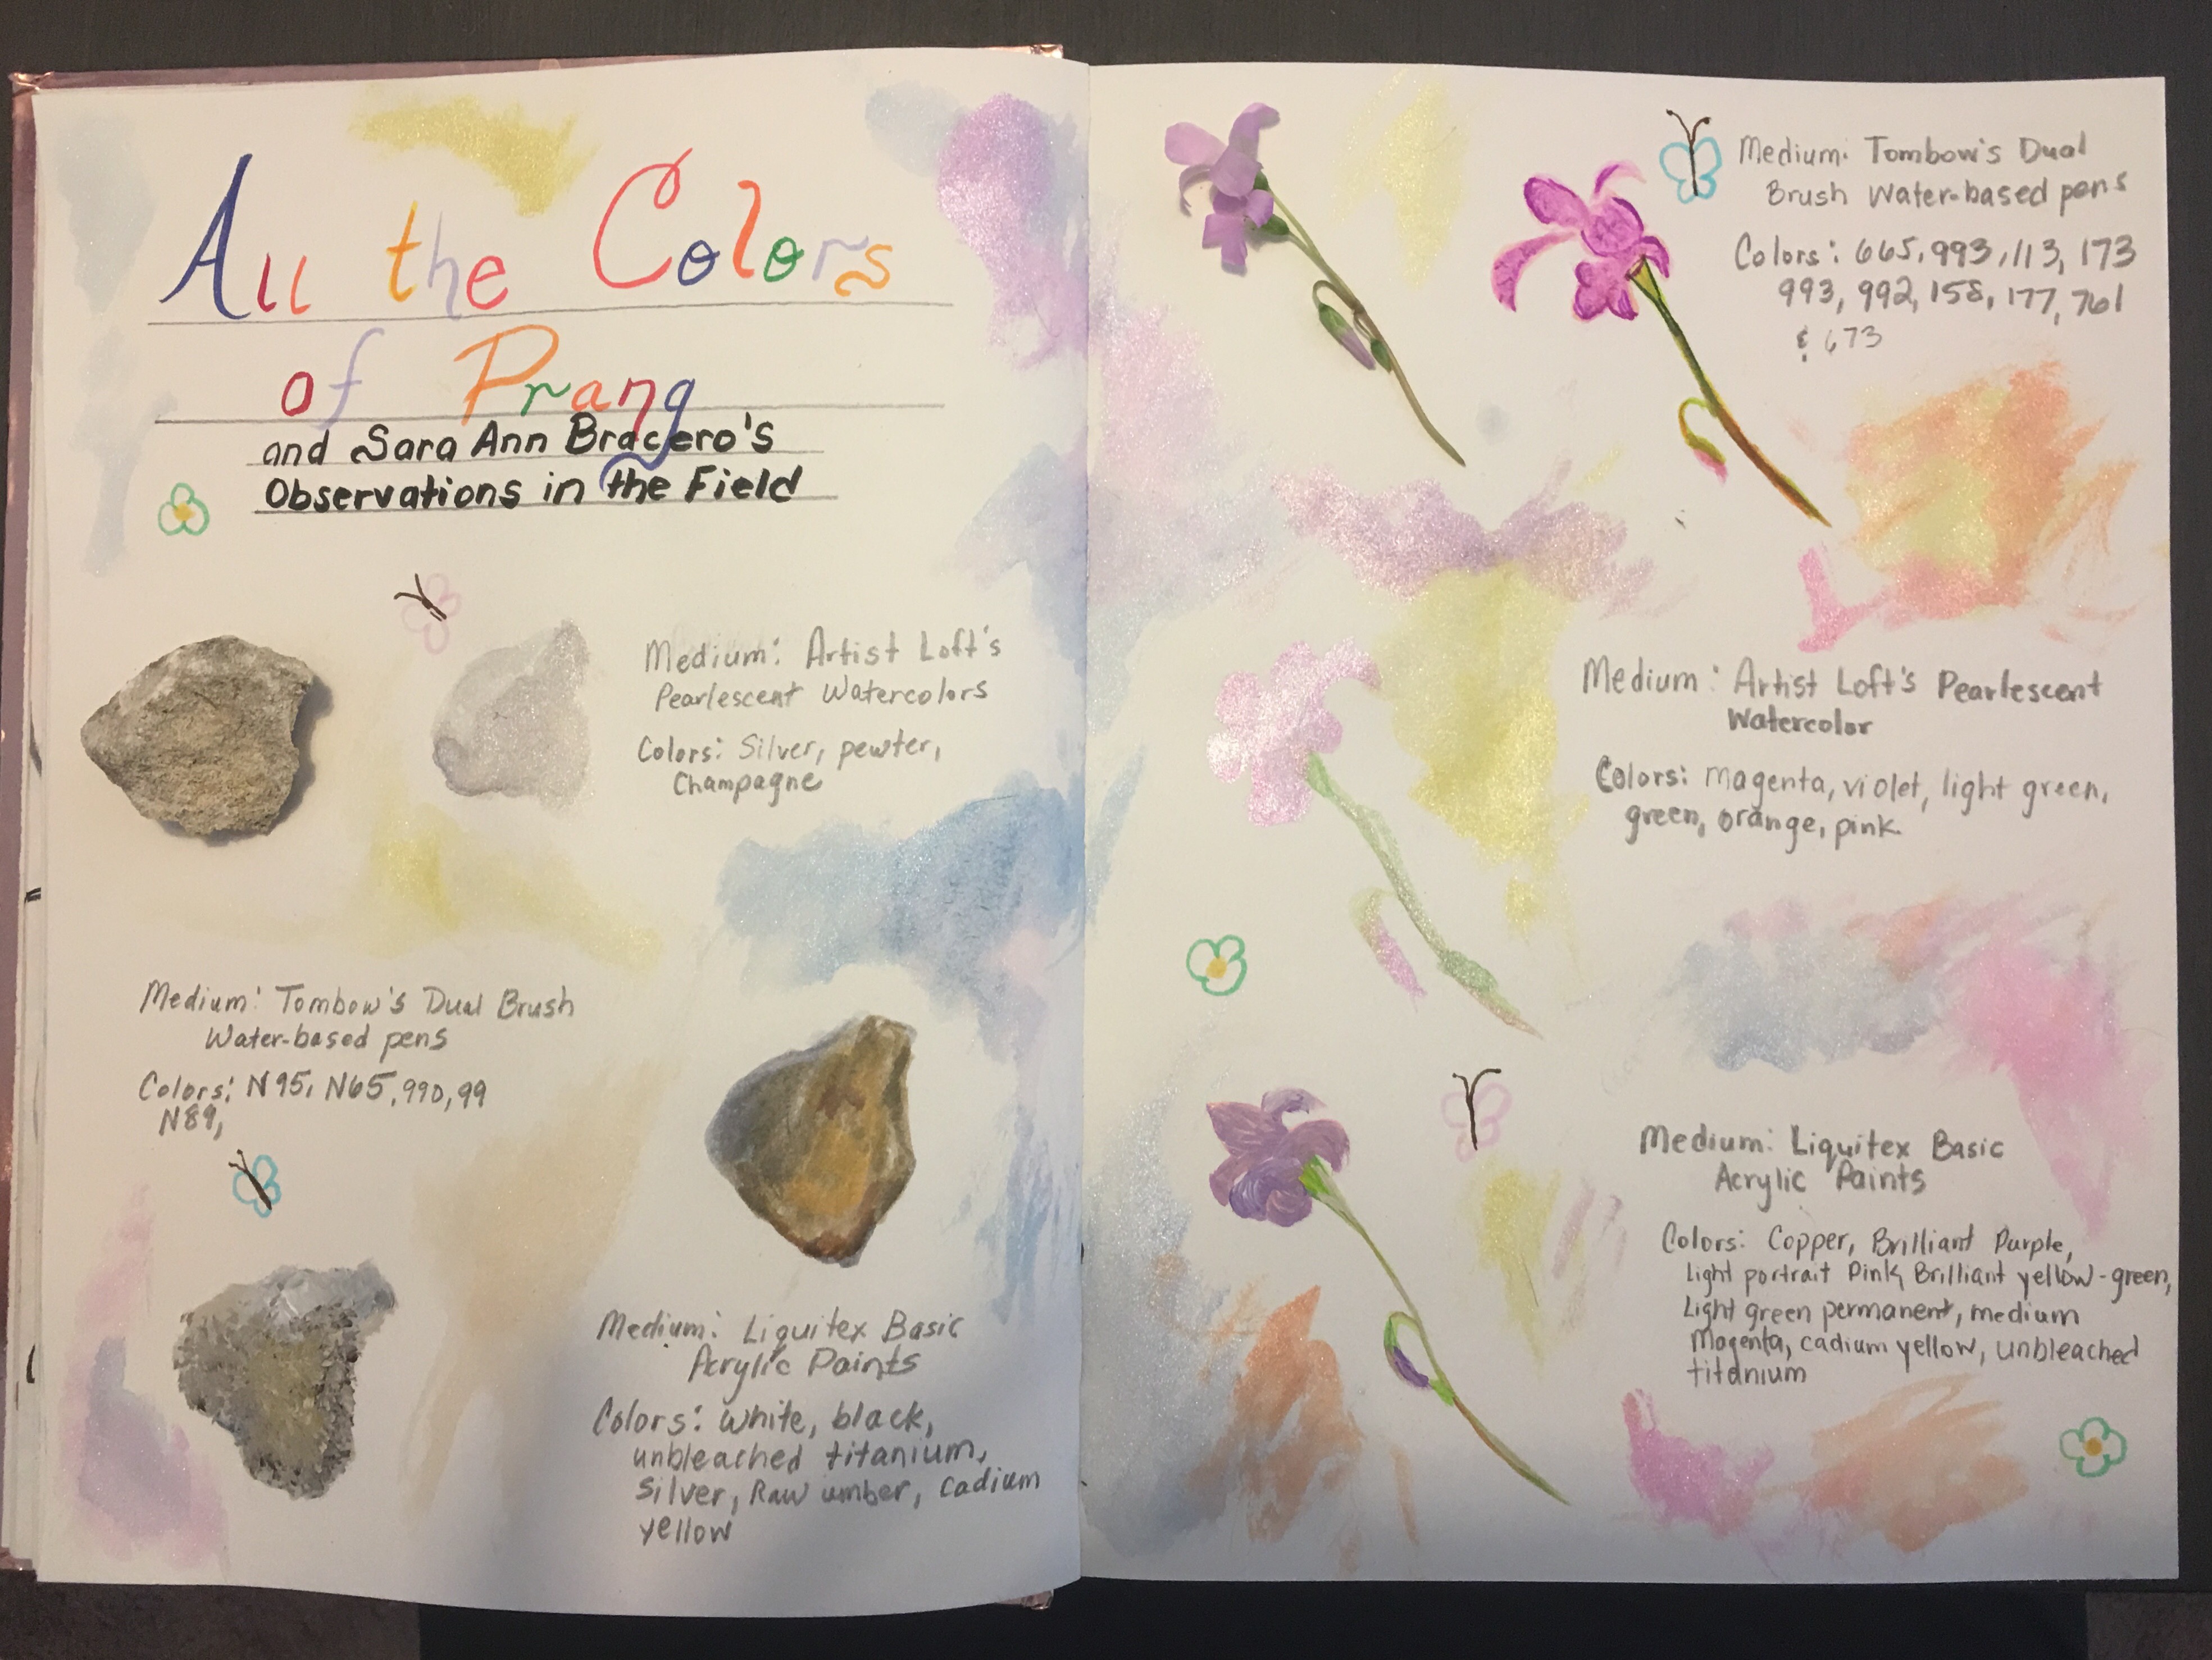 All the Colors
of Prang
and Sara Ann Bracero's
Observations in the Field
Medium: Artist Loft's
Pearlescent Watercolors
Colors: Silver, pewter,
Champagne
Medium: Tombow's Dual Brush
Water-based pens
Colors: N95, N65, 990, 99
N89,
Medium: Liquitex Basic
Acrylic Paints
Colors: white, black,
unbleached titanium,
Silver, Raw umber, Cadium
yellow
Medium: Tombow's Dual
Brush Water-based pens
Colors: 665, 993, 113, 173
993, 992, 158, 177, 761
& 673
Medium: Artist Loft's Pearlescent
Watercolor
Colors: Magenta, violet, light green,
green, orange, pink.
Medium: Liquitex Basic
Acrylic Paints
Colors: Copper, Brilliant Purple,
Light portrait Pink, Brilliant yellow-green,
Light green permanent, medium
Magenta, cadium yellow, unbleached
titanium